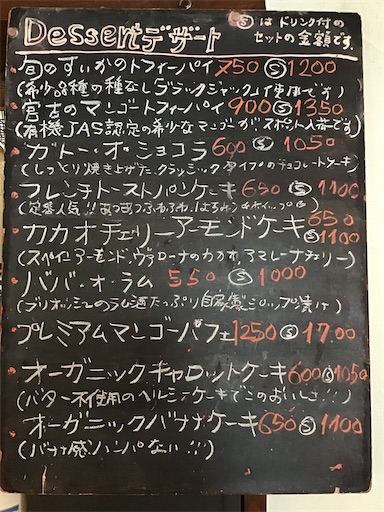 Dessert デザート
Ⓢは ドリンク付の
セットの金額です。
旬のすいかのトフィーパイ 750 Ⓢ1200
(希少品種の種なしブラックジャック使用です)
宮古のマンゴートフィーパイ 900 Ⓢ1350
(有機JAS認定の希少なマンゴーがスポット入荷です)
ガトー・オ・ショコラ 600 Ⓢ 1050
(しっとり焼き上げたクラシックタイプのチョコレートケーキ)
フレンチトーストパンケーキ 650 Ⓢ 1100
(定番人気!!あつあつふるふわ、はちみつ&ホイップ)
カカオチェリーアーモンドケーキ 650 Ⓢ1100
(スペインアーモンド、ヴァローナのカカオ、アマレーナチェリー)
ババ・オ・ラム 550 Ⓢ 1000
(ブリオッシュのラム酒たっぷり自家製シロップ漬け)
プレミアムマンゴーパフェ 1250 Ⓢ 1700
オーガニックキャロットケーキ 600 Ⓢ1050
(バター不使用のヘルシーケーキでこのおいしさ!!)
オーガニックバナナケーキ 650 Ⓢ1100
(バナナ感ハンパない!!!)